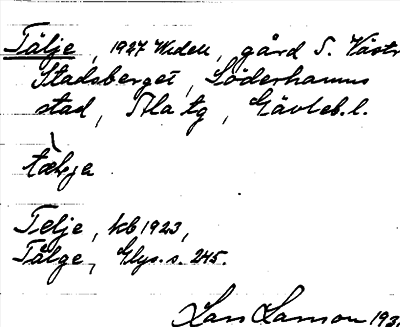 Tälje, 1927 Widell, gård S. Västr
Stadsberget, Söderhamns
stad, Ala tg, Gävleb. l.
tälje
Telje, kb 1923,
Tälge, Glys. s. 245.
Lars Larsson 193